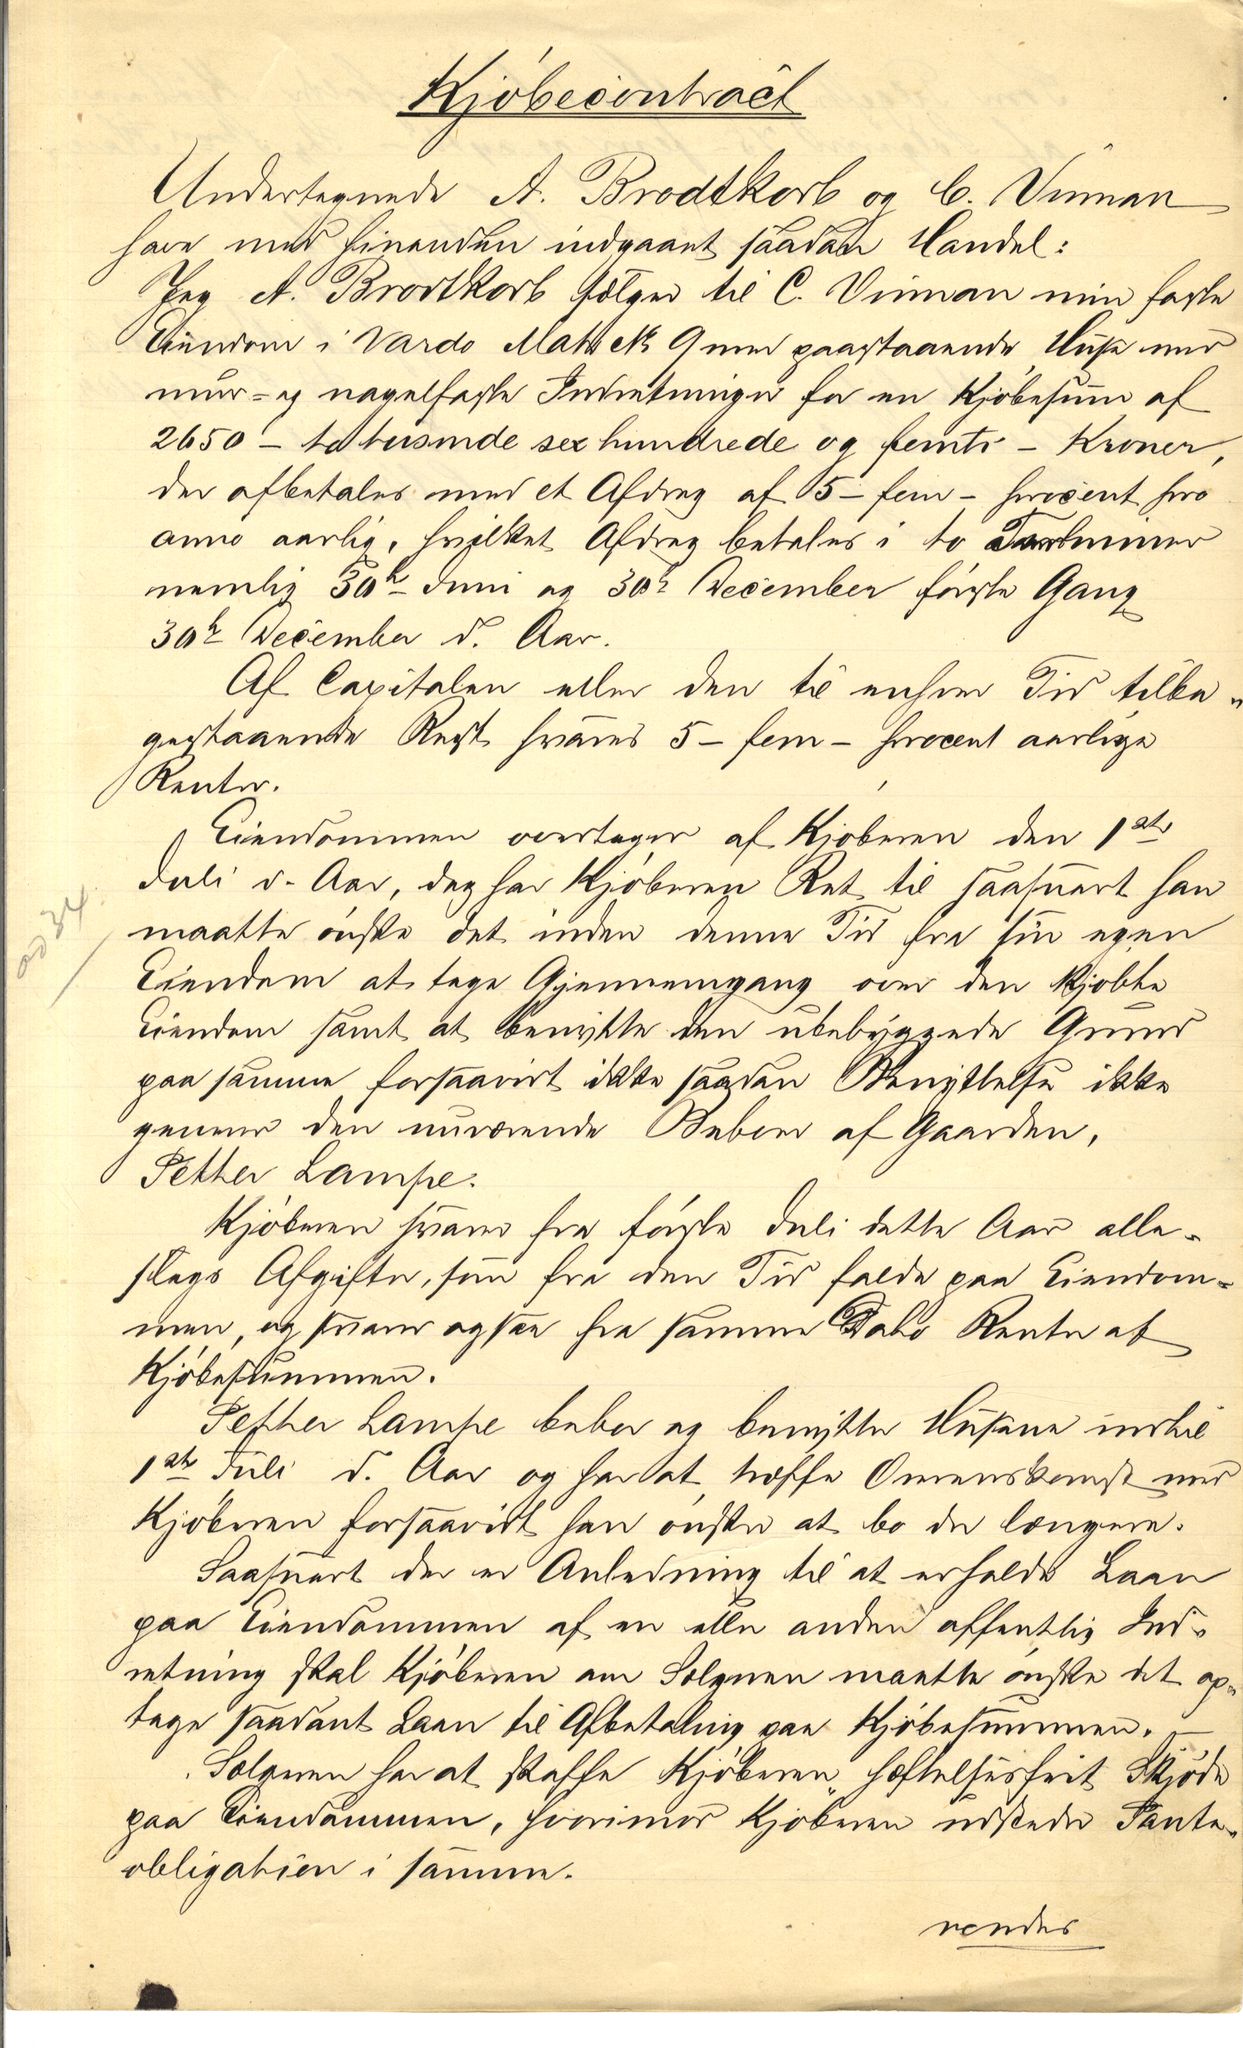 Kjöbecontract
Undertegnede A. Brodtkorb og C. Vinman
have med hinanden indgaaet saadan Handel:
Jeg A. Brodtkorb sælger til C. Vinman min faste
Eiendom i Vardö Matr № 9 med paastaaende Huse med
mur- og nagelfaste Indretninger for en Kjöbesum af
2650 – to tusinde sex hundrede og femti – Kroner,
der afbetales med et Afdrag af 5 – fem – procent pro
anno aarlig, hvilket Afdrag betales i to Terminer
nemlig 30te Juni og 30te December förste Gang
30te December d. Aar.
Af Capitalen eller den til enhver Tid tilba-
gestaaende Rest svares 5 – fem – procent aarlige
Renter.
Eiendommen overtages af Kjöberen den 1ste
Juli d. Aar, dog har Kjöberen Ret til saasnart han
maatte önske det inden denne Tid fra sin egen
Eiendom at tage Gjennemgang over den kjöbte
Eiendom samt at benytte den ubebyggede Grund
paa samme forsaavidt ikke saadan Benyttelse ikke
generer den nuværende Beboer af Gaarden,
Petter Lampe.
Kjöberen svarer fra förste Juli dette Aar alle-
slags Afgifter, som fra den Tid falde paa Eiendom-
men, og svarer ogsaa fra samme Dato Renter af
Kjöbesummen.
Petter Lampe bebor og benytter Husene indtil
1ste Juli d. Aar og har at træffe Overenskomst med
Kjöberen forsaavidt han önsker at bo der længere.
Saasnart der er Anledning til at erholde Laan
paa Eiendommen af en eller anden offentlig Ind-
retning skal Kjöberen om Sælgeren maatte önske det op-
tage saadant Laan til Afbetaling paa Kjöbesummen. –
Sælgeren har at skaffe Kjöberen hæftelsesfrit Skjöde
paa Eiendommen, hvorimod Kjöberen udsteder Pante-
obligation i samme.
vendes